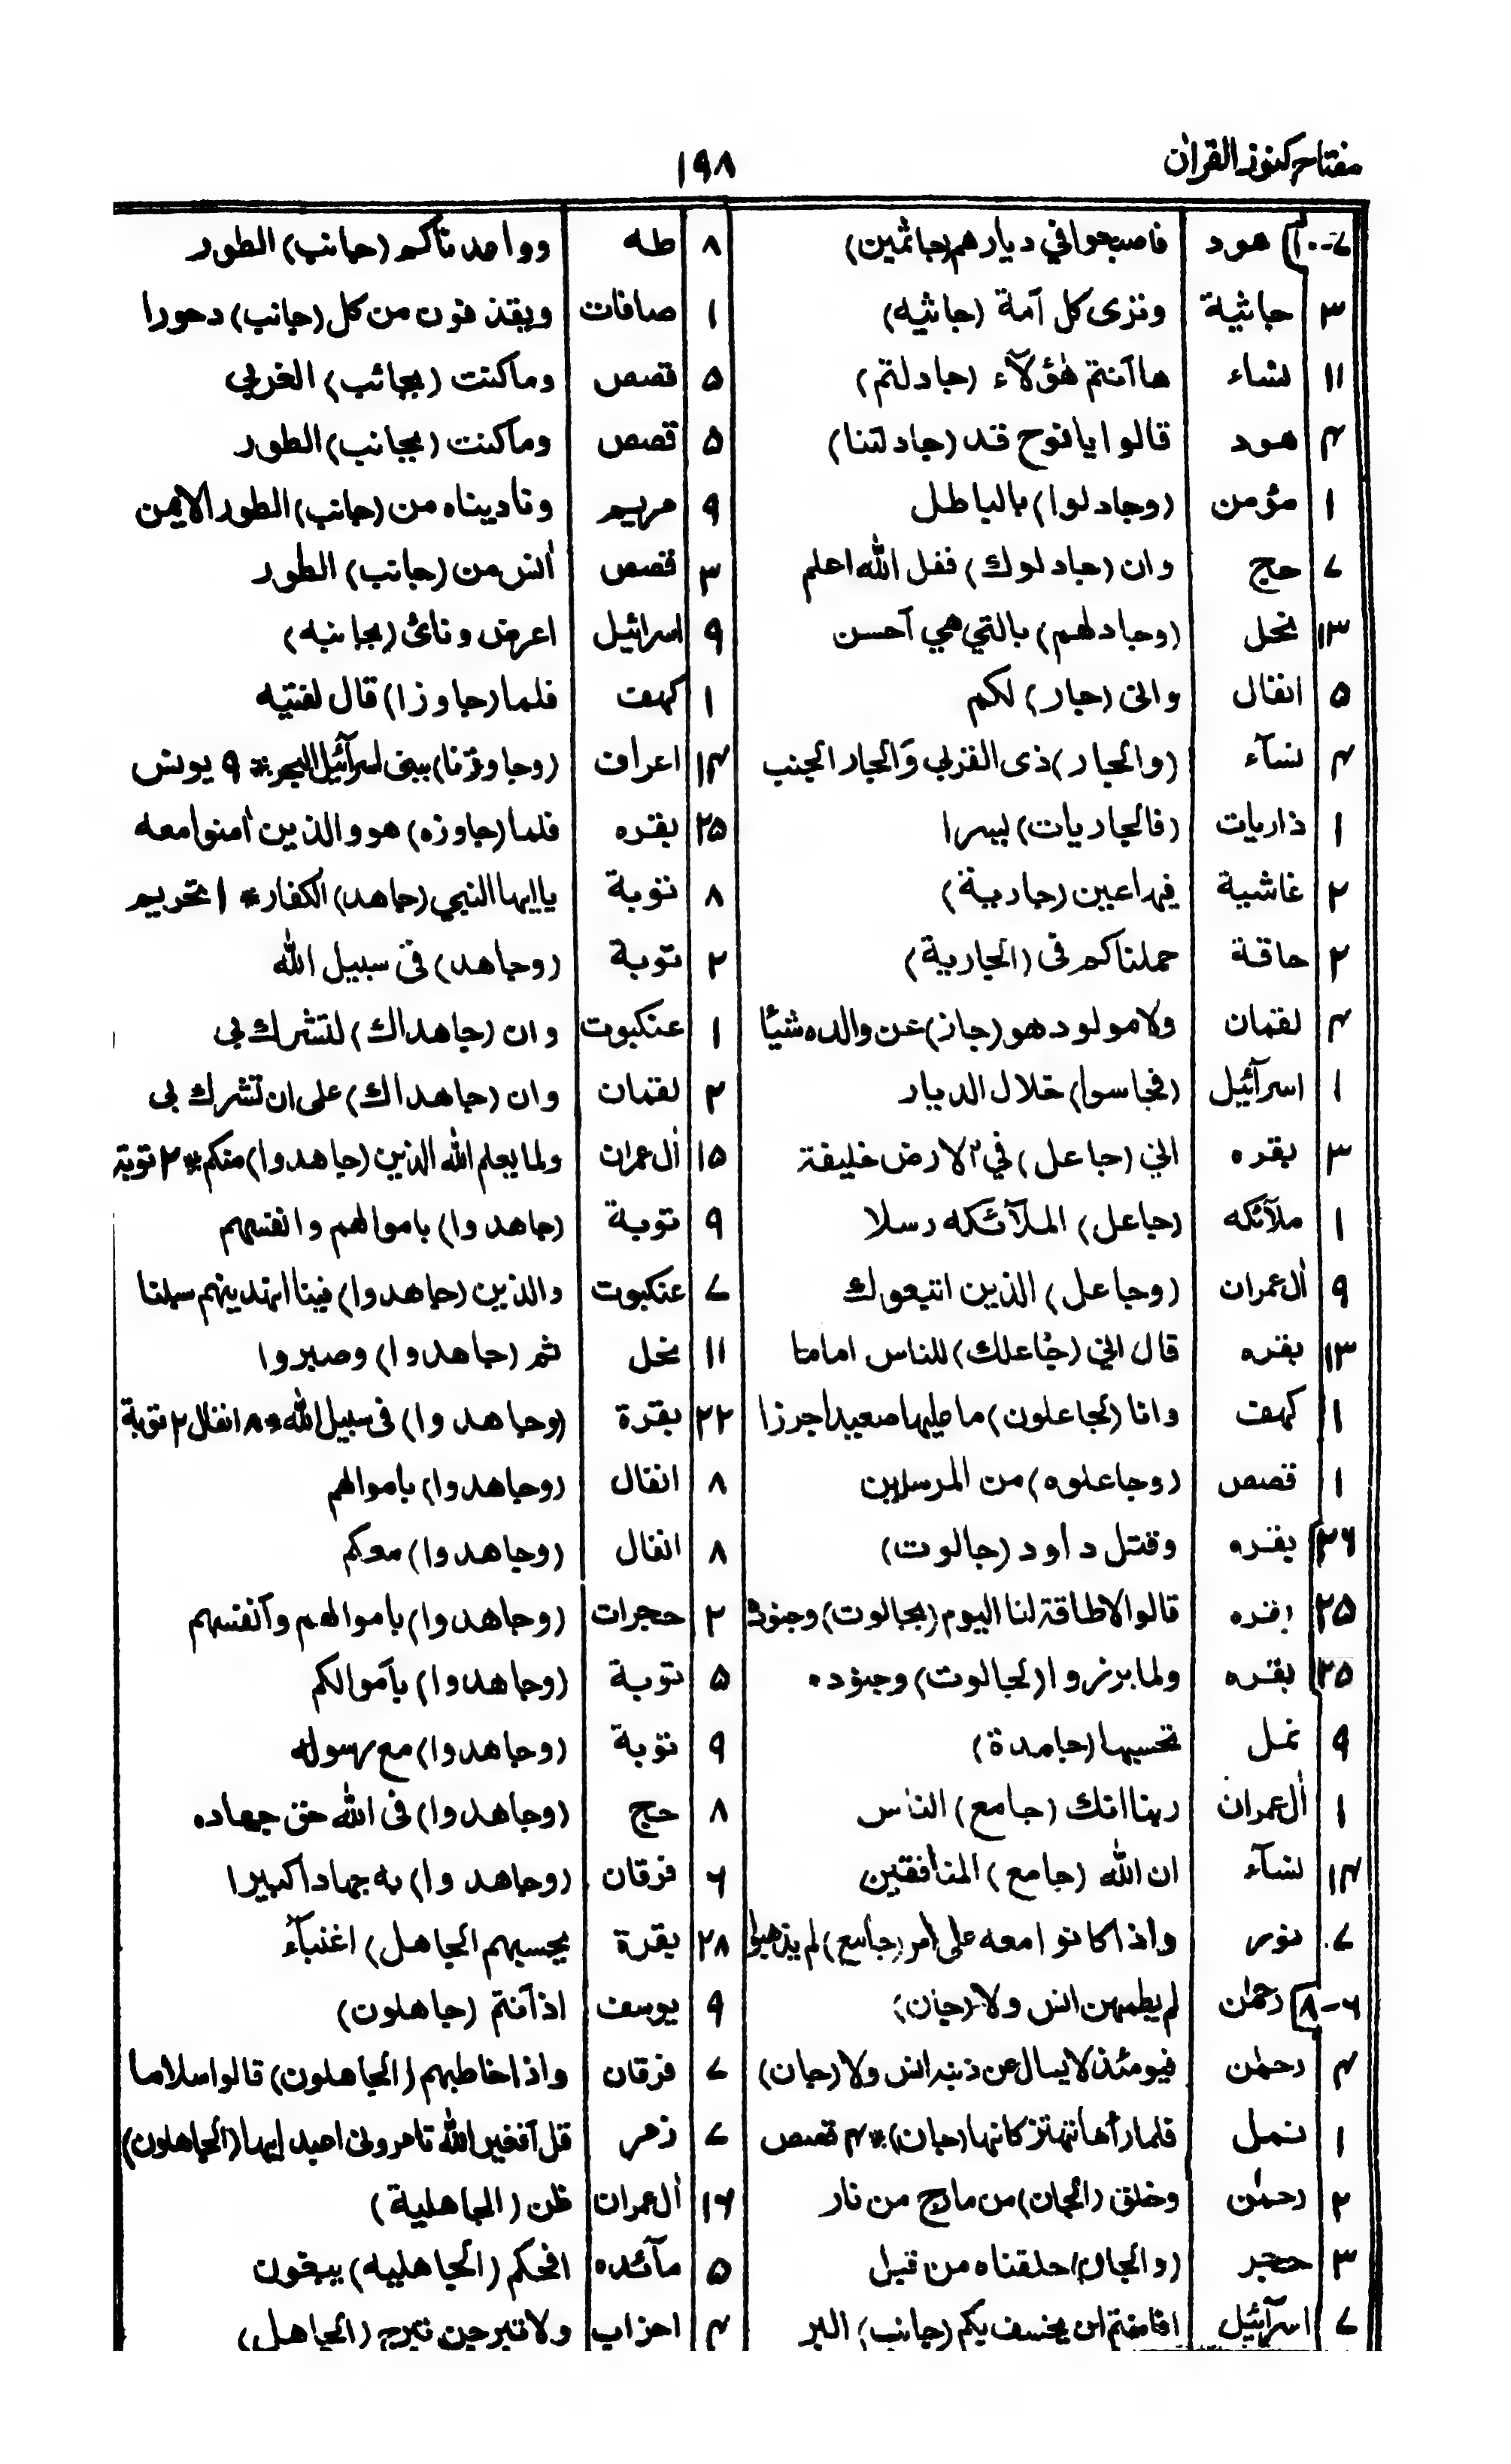 مفتاح كنوز القران
١٩٨
٧-١٠ هود فاصبحوا في ديارهم (جاثمين)
٣ جاثية وترى كل آمة (جاثيه)
١١ نساء ها آنتم هؤلآء (جادلتم)
٣ هود قالوا يا نوح قد (جادلتنا)
١ مؤمن (وجادلوا) بالباطل
٧ حج وان (جادلوك) فقل الله اعلم
١٣ نحل (وجادلهم) بالتي هي آحسن
٥ انفال وانى (جار) لكم
٣ نسآء (والجار) ذى القربى وَالجار الجنب
١ ذاريات (فالجاريات) يسرا
٢ غاشية فيها عين (جارية)
٢ حاقة حملناكم فى (الجارية)
٣ لقمان ولا مولود هو (جاز) عن والده شيئا
١ اسرآئيل (فجاسوا) خلال الديار
٣ بقره اني (جاعل) في الارض خليفة
١ ملآئكه (جاعل) الملآئكه رسلا
٩ اٰل عمران (وجاعل) الذين اتبعوك
١٣ بقره قال اني (جاعلك) للناس اماما
١ كهف وانا (لجاعلون) ما عليها صعيدا جرزا
١ قصص (وجاعلوه) من المرسلين
٢٦ بقره وقتل داود (جالوت)
٢٥ بقره قالوا لا طاقة لنا اليوم (بجالوت) وجنوده
٢٥ بقره ولما برزوا (لجالوت) وجنوده
٩ نمل تحسبها (جامدة)
١ اٰل عمران ربنا انك (جامع) الناس
١٣ نسآء ان الله (جامع) المنافقين
٧ نور واذا كانوا معه على امر (جامع) لم يذهبوا
٦-٨ رحمٰن لم يطمهن انس ولا (جان)
٣ رحمٰن فيومئذ لا يسال عن ذنبه انس ولا (جان)
١ نمل فلما رأها تهتز كانها (جان) * ٣ قصص
٢ رحمٰن وخلق (الجان) من مارج من نار
٣ حجر (والجان) خلقناه من قبل
٧ اسرآئيل افامنتم ان يخسف بكم (جانب) البر
٨ طه وواعدناكم (جانب) الطور
١ صافات ويقذفون من كل (جانب) دحورا
٥ قصص وما كنت (بجانب) الغربي
٥ قصص وما كنت (بجانب) الطور
٩ مريم وناديناه من (جانب) الطور الايمن
٣ قصص اٰنس من (جانب) الطور
٩ اسرائيل اعرض ونائ (بجانبه)
١ كهف فلما (جاوزا) قال لفتيه
١٣ اعراف (وجاوزنا) ببنى اسرآئيل البحر * ٩ يونس
٢٥ بقره فلما (جاوزه) هو والذين اٰمنوا معه
٨ توبة يا ايها النبي (جاهد) الكفار * ١ تحريم
٢ توبة (وجاهد) فى سبيل الله
١ عنكبوت وان (جاهداك) لتشرك بي
٢ لقمان وان (جاهداك) على ان تشرك بى
١٥ اٰل عمران ولما يعلم الله الذين (جاهدوا) منكم * ٢ توبة
٩ توبة (جاهدوا) باموالهم وانفسهم
٧ عنكبوت والذين (جاهدوا) فينا لنهدينهم سبلنا
١١ نحل ثم (جاهدوا) وصبروا
٢٢ بقرة (وجاهدوا) فى سبيل الله * ٨ انفال ٢ توبة
٨ انفال (وجاهدوا) باموالهم
٨ انفال (وجاهدوا) معكم
٢ حجرات (وجاهدوا) باموالهم وآنفسهم
٥ توبة (وجاهدوا) بآموالكم
٩ توبة (وجاهدوا) مع رسوله
٨ حج (وجاهدوا) فى الله حق جهاده
٦ فرقان (وجاهدوا) به جهادا كبيرا
٢٨ بقرة يحسبهم الجاهل) اغنيآء
٩ يوسف اذ آنتم (جاهلون)
٧ فرقان واذا خاطبهم (الجاهلون) قالوا سلاما
٧ زمر قل آفغير الله تامرونى اعبد ايها (الجاهلون)
١٦ اٰل عمران ظن (الجاهلية)
٥ مآئده افحكم (الجاهليه) يبغون
٣ احزاب ولا تبرجن تبرج (الجاهل)